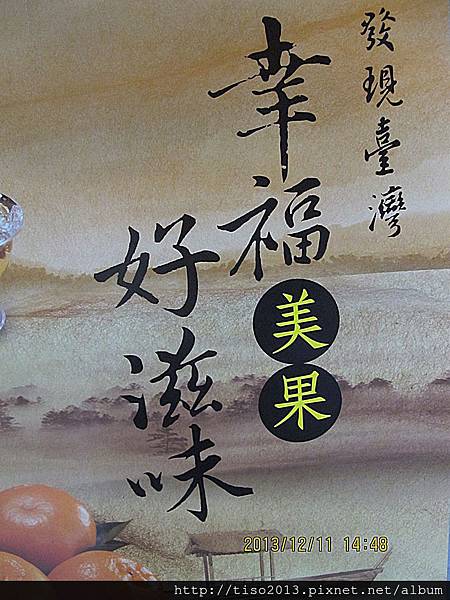 發現臺灣
幸福美果
好滋味
2013/12/11 14:48
http://tiso2013.pixnet.net/album